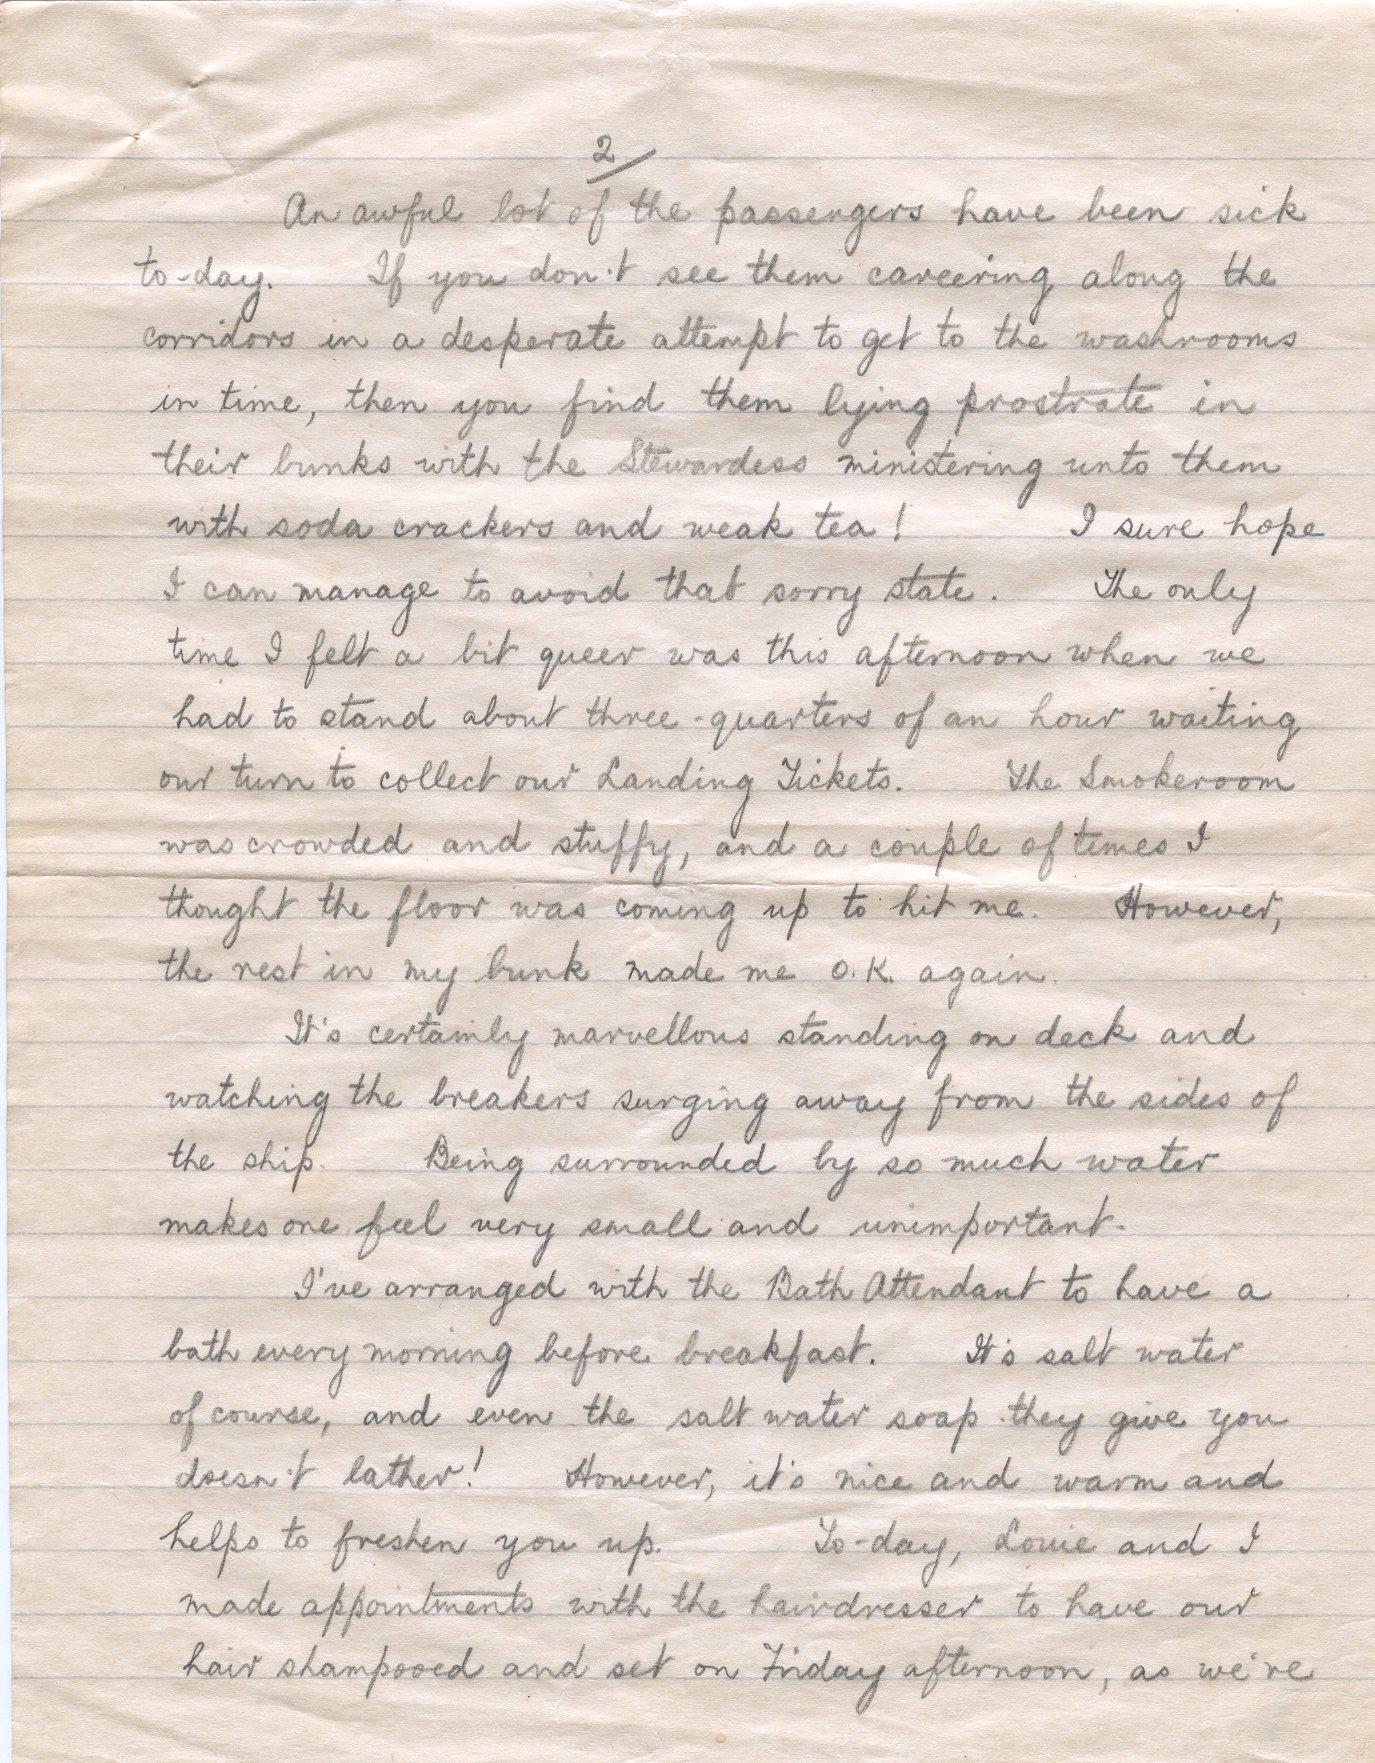 2/
An awful lot of the passengers have been sick
to-day. If you don't see them careering along the
corridors in a desperate attempt to get to the washrooms
in time, then you find them lying prostrate in
their bunks with the Stewardess ministering unto them
with soda crackers and weak tea! I sure hope
I can manage to avoid that sorry state. The only
time I felt a bit queer was this afternoon when we
had to stand about three-quarters of an hour waiting
our turn to collect our Landing Tickets. The Smokeroom
was crowded and stuffy, and a couple of times I
thought the floor was coming up to hit me. However,
the rest in my bunk made me O.K. again.
It's certainly marvellous standing on deck and
watching the breakers surging away from the sides of
the ship. Being surrounded by so much water
makes one feel very small and unimportant.
I've arranged with the Bath Attendant to have a
bath every morning before breakfast. It's salt water
of course, and even the salt water soap they give you
doesn't lather! However, it's nice and warm and
helps to freshen you up. To-day, Louie and I
made appointments with the hairdresser to have our
hair shampooed and set on Friday afternoon, as we're